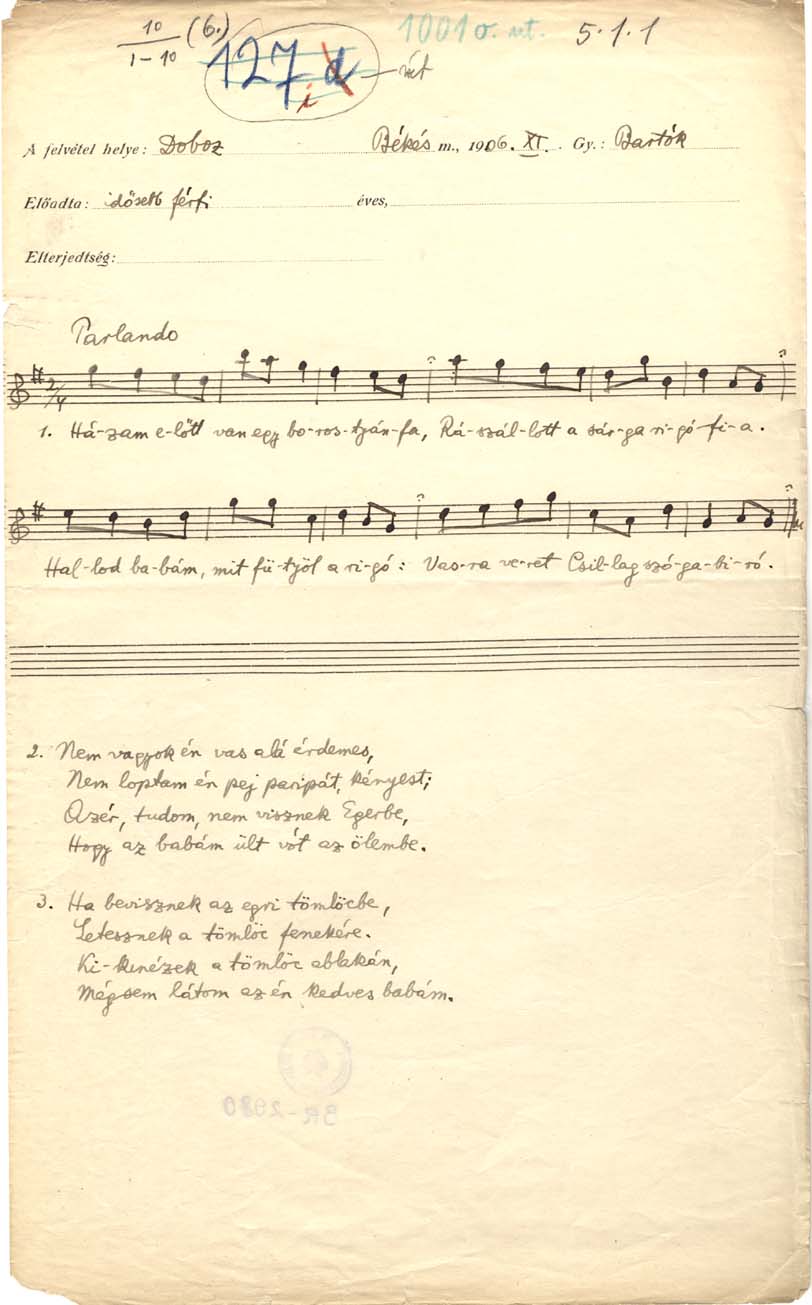 10 (6.) 1001 o. nt. 5.1.1
1-10 127 d
i
A felvétel helye: Doboz Békés m., 1906. XI. Gy.: Bartók
Előadta: idősebb férfi éves,
Elterjedtség:
Parlando
2/4
1. Há-zam e-lőtt van egy bo-ros-tyán-fa, Rá-szál-lott a sár-ga ri-gó-fi-a.
Hal-lod ba-bám, mit fü-työl a ri-gó: Vas-ra ve-ret Csil-lag szó-ga-bi-ró.
2. Nem vagyok én vas alá érdemes,
Nem loptam én pej paripát, kényest;
Azér, tudom, nem visznek Egerbe,
Hogy az babám ült vót az ölembe.
3. Ha bevisznek az egri tömlöcbe,
Letesznek a tömlöc fenekére.
Ki-kinézek a tömlöc ablakán,
Mégsem látom az én kedves babám.
BR-2980